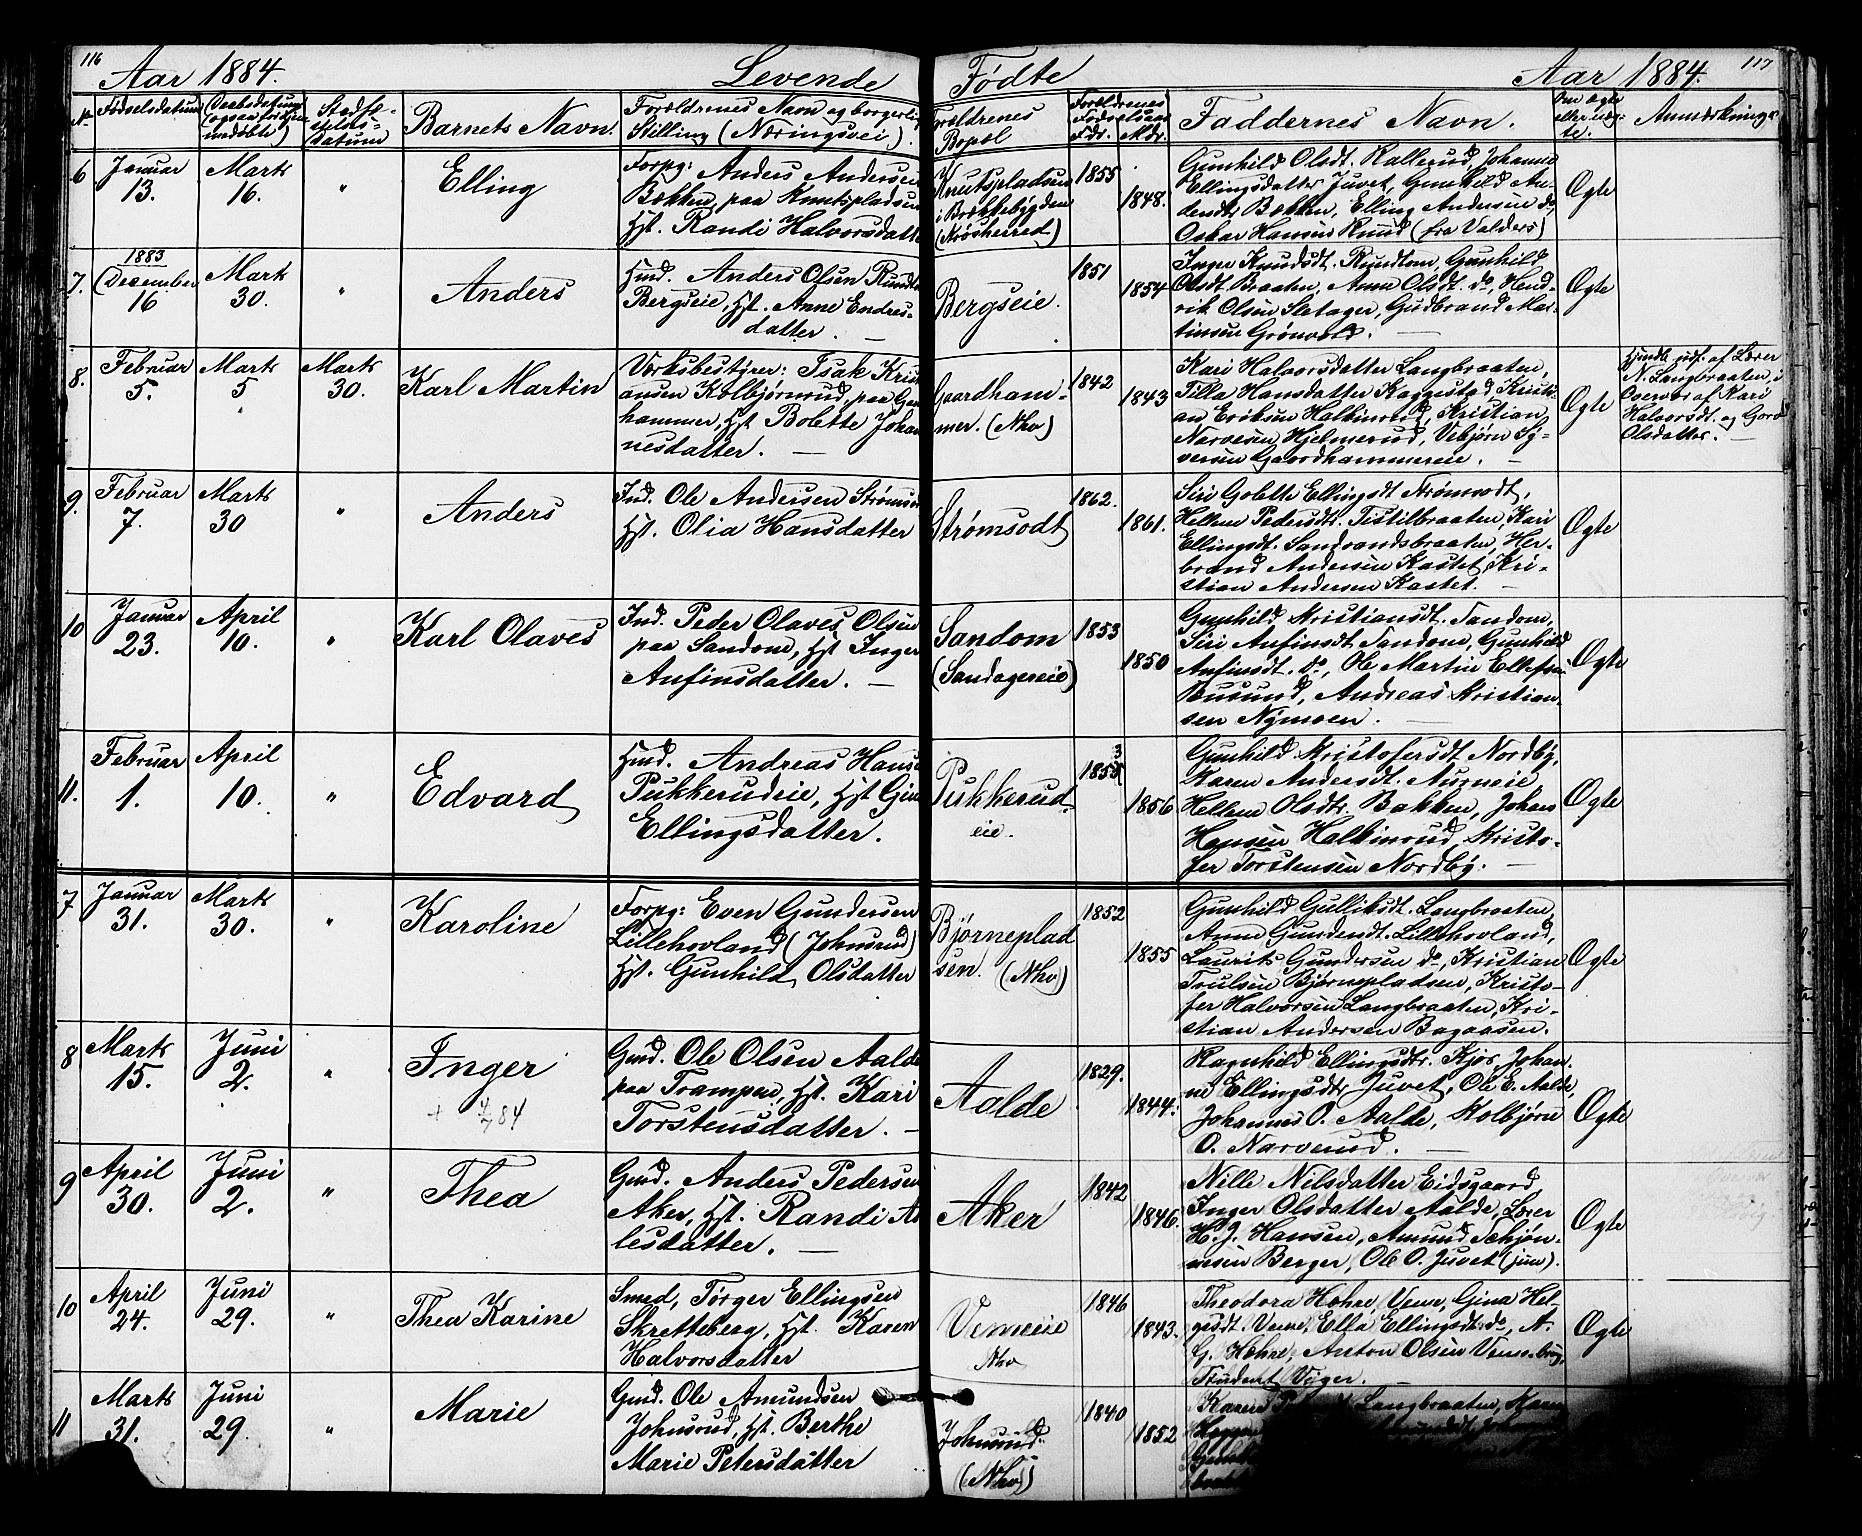 116
Aar 1884.
Levende
Fødte
Aar 1884.
117
No
Fødselsdatum
Daabsdatum
(ogsaa for hjem-
medøbte)
Stadfæ-
stelses-
datum
Barnets Navn.
Forældrenes Navn og borgerlig
Stilling (Næringsvei).
Forældrenes
Bopæl
Forældrenes
Fødselsaar
Fdr. Mdr.
Faddernes Navn.
Om Ægte
eller uæg-
te.
Anmærkning
6
Januar
13.
Marts
16.
"
Elling
Forpg: Anders Andersen
Bækken, paa Knutspladsen
Hst. Randi Halvorsdatter
Knutspladsen
i Brækkebygden
(Krøsherred)
1855
1848.
Gunhild Olsdt. Kallerud, Johanne
Ellingsdatter Juvet, Gunhild An-
dersdt. Bækken, Elling Andersen do,
Oskar Hansen Ruud (fra Valders)
Ægte
7.
1883
(December
16
Marts
30.
"
Anders
Hmd. Anders Olsen Rundto
Bergseie, Hst. Anne Endres-
datter. —
Bergseie.
1851
1854
Inger Knudsdt. Rundtom, Gunhild
Olsdt. Braaten, Anne Olsdt. do, Hend-
rik Olsen Sletager, Gudbrand Mar-
tinsen Grønvold. —
Ægte
8.
Februar
5.
Marts
5
"
Marts
30.
Karl Martin
Værksbestyrer: Isak Krist
ansen Kolbjørnrud, paa Gaa
hammer, Hst Bolette Johan
nesdatter. —
Gaardham-
mer. (Nho)
1842
1843
Kari Halvorsdatter Langbraaten,
Tilla Hansdatter Kaggestad, Kristi-
an Eriksen Halkinrud, Kristian
Narvesen Hjelmerud, Vebjørn Sy-
versen Gaardhammereie. —
Ægte
Hjemdb. udf. af Lærer
N. Langbraaten, i
Overvær af Kari
Halvorsdt. og Goro
Olsdatter. —
9.
Februar
7.
Marts
30
"
Anders
Ind. Ole Andersen Strømso
Hst. Olia Hansdatter
Strømsodt
1862.
1861.
Siri Golette Ellingsdt Strømsodt,
Hellene Pedersdtr. Tistilbraaten, Kari
Ellingsdt. Sandvandsbraaten, Her-
brand Andersen Kastet, Kri-
stian Andersen Kastet. —
Ægte
10
Januar
23.
April
10.
"
Karl Olaves
Ind. Peder Olaves Olsen
paa Sandom, Hst Inger
Anfinsdatter. —
Sandom
(Sandagereie)
1853
1850
Gunhild Kristiansdt. Sandom,
Siri Anfinsdt Sandom, Gunhild
Anfinsdt. do, Ole Martin
Busund, Andreas Kristian-
sen Nymoen. —
Ægte
11.
Februar
1.
April
10.
"
Edvard
Hmd. Andreas Hanse
Pukkerudeie, Hst Gine
Ellingsdatter.
Pukkerud
eie.
3
1855
1856
Gunhild Kristofersdt Nordby,
Karen Andersdt.
Hellene Olsdtr. Bakken, Johan
Hansen Halkinrud, Kristo-
fer Torstensen Nordby. —
Ægte
7
Januar
31.
Marts
30.
"
Karoline
Forpg: Even Gundersen
Lillehovland (Johnsrud)
Hst. Gunhild Olsdatter
Bjørneplad
sen. (Nho)
1852
1855
Gunhild Gulliksdt. Langbraaten,
Anne Gundersdt. Lillehovland,
Laurits Gundersen do, Kristian
Truلsen Bjørnepladsen, Kristo-
fer Halvorsen Langbraaten, Kri-
stian Andersen Bagaasen.
Ægte
8
Marts
15.
Juni
2.
"
Inger
+ 84
Gmd. Ole Olsen Aalde
paa Trampen, Hst. Kari
Torstensdatter. —
Aalde
1829.
1844.
Ragnhild Ellingsdtr. Kjøs, Johan-
ne Ellingsdtr Juvet, Ole E. Aalde,
Johannes O. Aalde, Kolbjørn
O. Narverud. —
Ægte
9
April
30.
Juni
2.
"
Thea
Gmd. Anders Pedersen
Aker, Hst. Randi A
lesdatter.
Aker
1842
1846.
Nille Nilsdatter Eidsgaard,
Inger Olsdatter Aalde, Lærer
H. J. Hansen, Amund Schjøn-
nesen Berger, Ole O. Juvet (jun).
Ægte
10
April
24.
Juni
29.
"
Thea Karine
Smed, Tørger Ellingsen
Skretteberg, Hst. Karen
Halvorsdatter
Vemeeie
Nho
1846
1843.
Theodora Hohne, Veme, Gina Hel-
gesdt. Veme, Ella Ellingsdt. do, A.
G. Hohne, Anton Olsen Vemebrug,
Student Vøger. —
Ægte
11
Marts
31.
Juni
29.
"
Marie
Gmd. Ole Amundsen
Johnsrud, Hst. Berthe
Marie Petersdatter
Johnsrud
(Nho)
1840
1852
Karen Langbraaten, Karen